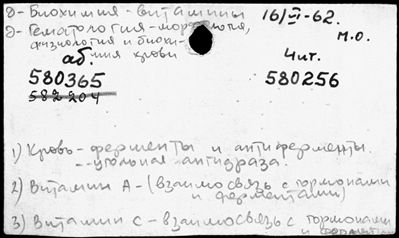 д - Биохимия - витамины 16/VI-62.
д - Гематология - морфология, м.о.
физиология и биохи-
мия крови
аб. Чит.
580365 580256
582204
1) Кровь - ферменты и антиферменты.
-"- угольная ангидраза.
2) Витамин А - (взаимосвязь с гормонами
и ферментами)
3) Витамин С - взаимосвязь с гормонами
и ферментами